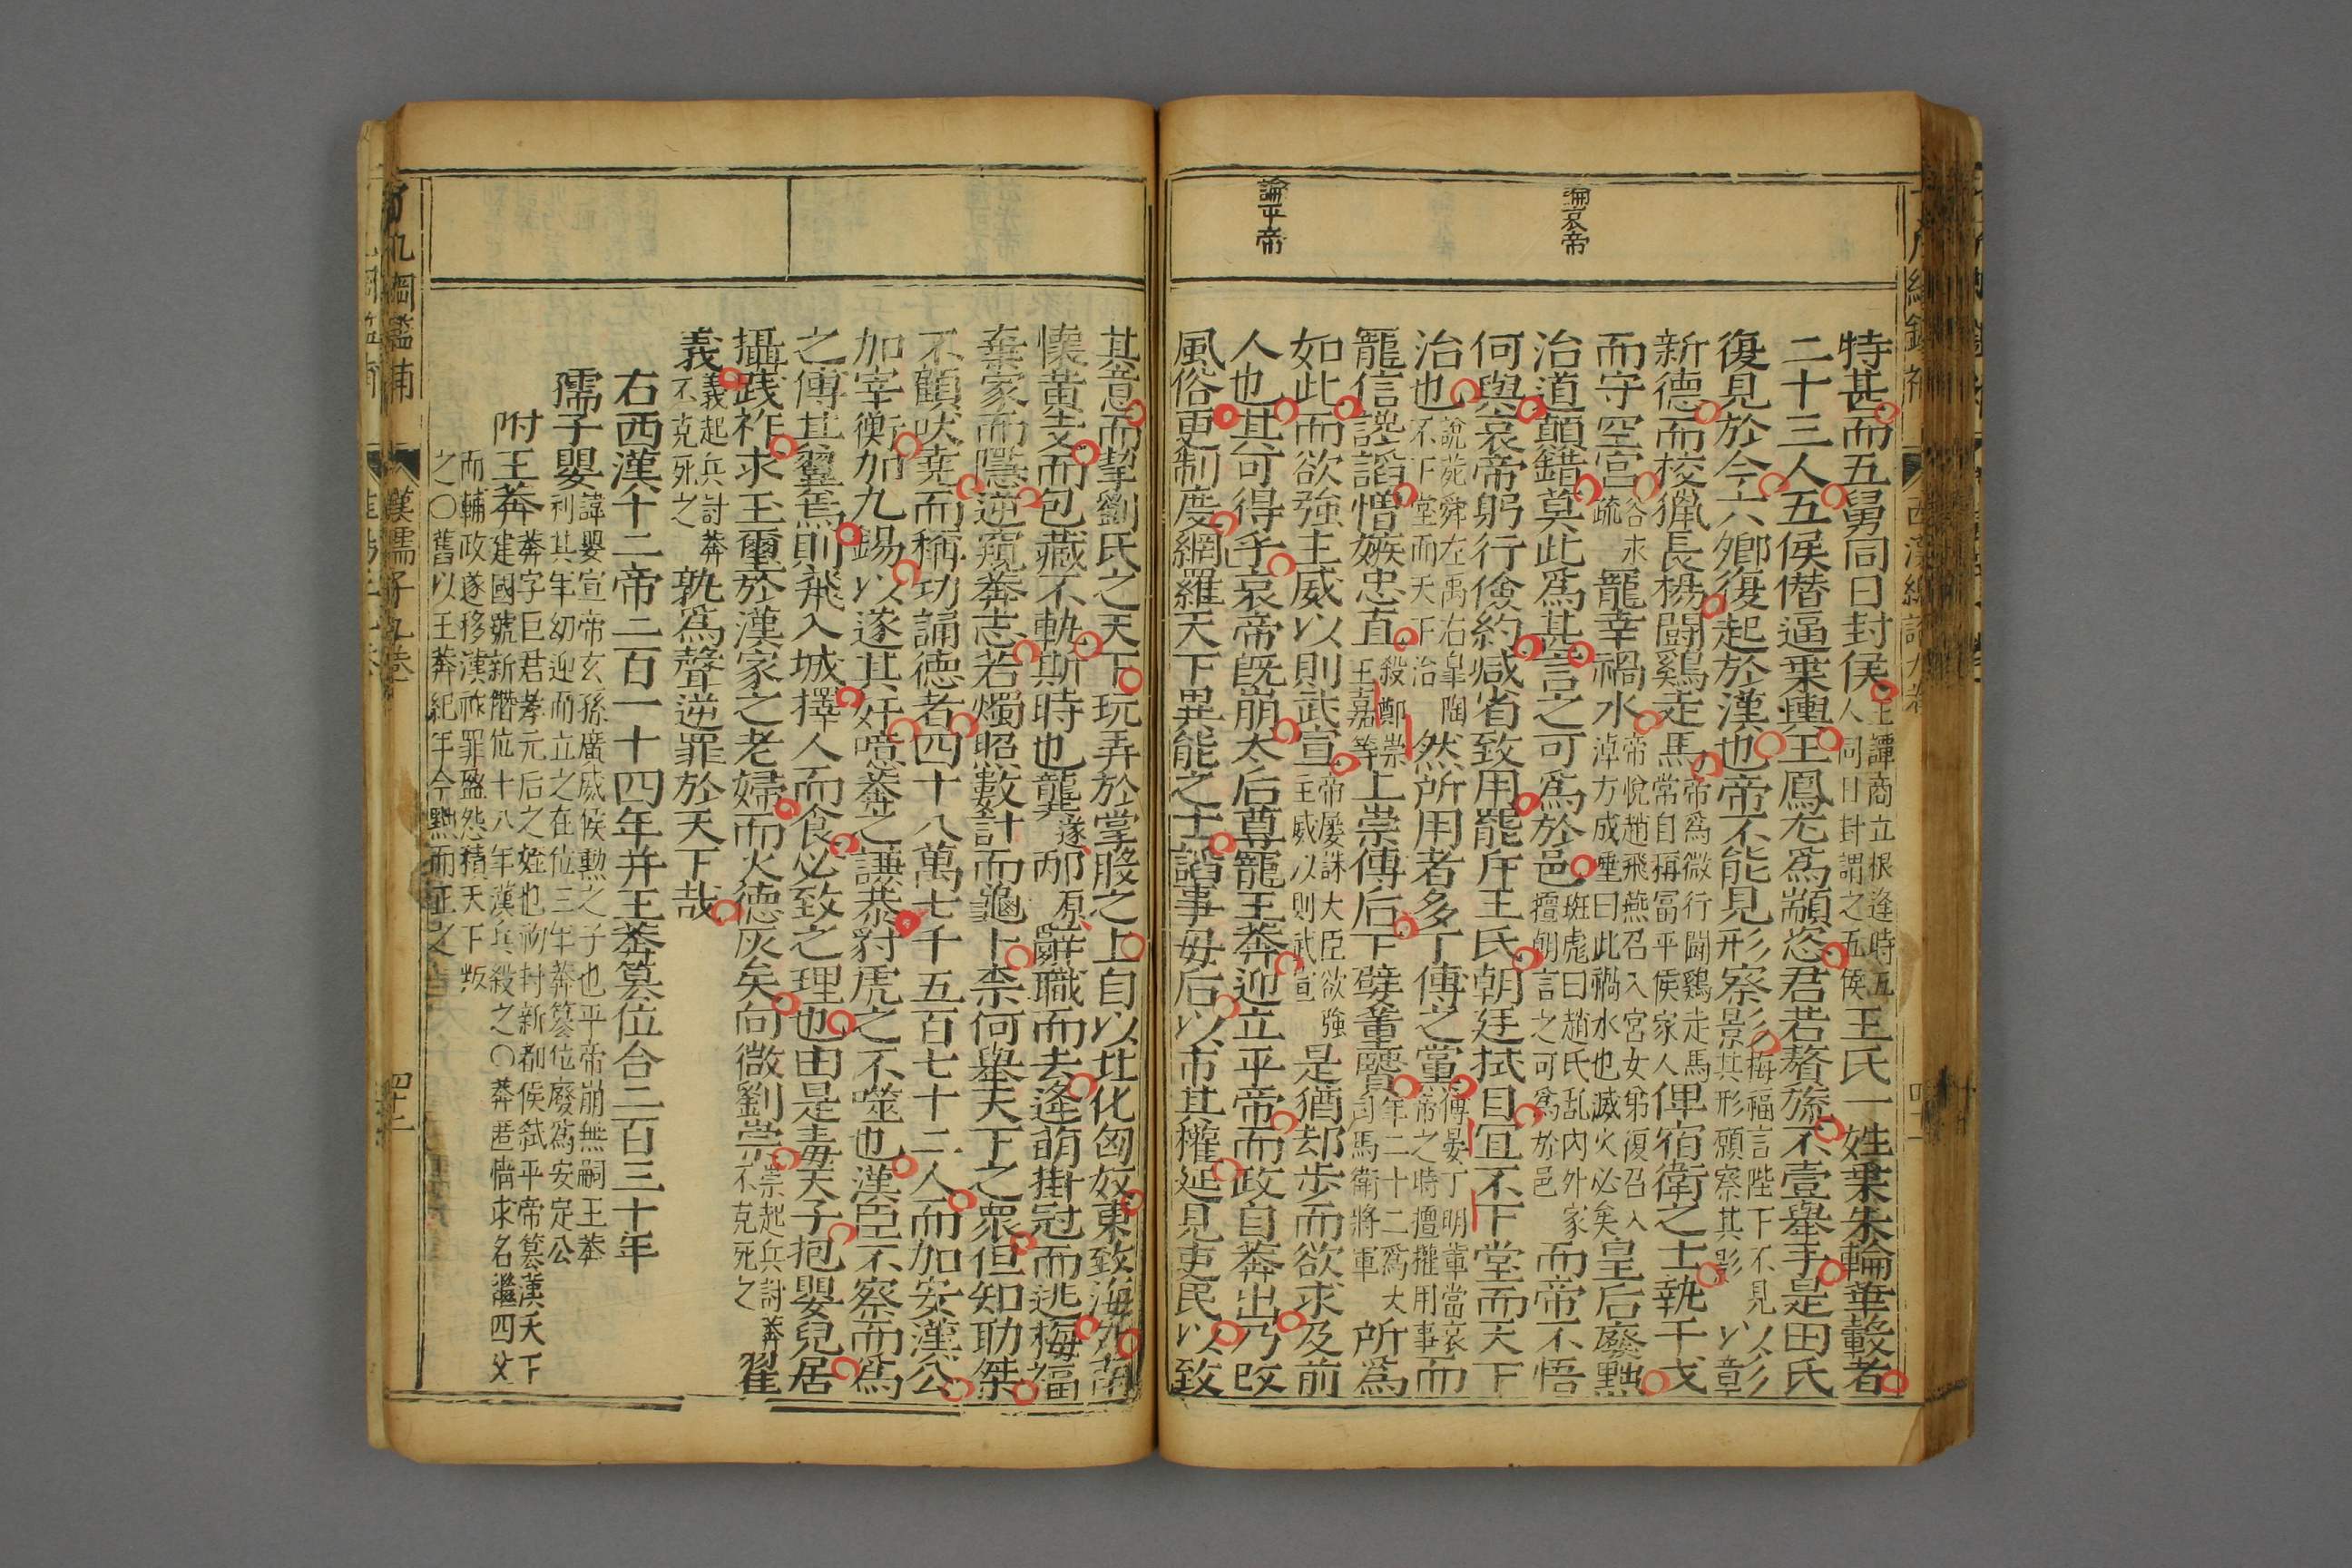 論哀帝
論平帝
特甚而五舅同日封侯王譚商立根逢時五人同日封謂之五侯王氏一姓乗朱輪華轂者
二十三人五侯僭逼乗輿王鳳尤為顓恣君若贅旒不壹舉手是田氏
復見於今六卿復起於漢也帝不能見形察影梅福言陛下不見以影其形願察其影以彰
新德而校獵長楊鬪鷄走馬帝為微行鬪鷄走馬常自稱冨平侯家人俾宿衛之士執干戈
而守空宫谷永疏寵幸禍水帝悅趙飛燕召入宮女弟復召入淖方成唾曰此禍水也滅火必矣皇后廢黜
治道顛錯莫此為甚言之可為於邑班彪曰趙氏乱內外家擅朝言之可為於邑而帝不悟
何與哀帝躬行儉約减省致用罷斥王氏朝廷拭目宜不下堂而天下
治也說苑舜左禹右皐陶不下堂而天下治然所用者多丁傅之黨傅晏丁明輩當哀帝之時擅權用事而
寵信讒謟憎嫉忠直殺鄭崇王嘉等上崇傅后下孽董賢年二十二為大司馬衛將軍所為
如此而欲強主威以則武宣帝屡誅大臣欲強主威以則武宣是猶却歩而欲求及前
人也其可得乎哀帝旣崩太后尊寵王莽迎立平帝而政自莽出乃改
風俗更制度網羅天下異能之士謟事毋后以市其權延見吏民以致
其意而挈劉氏之天下玩弄於掌股之上自以北化匈奴東致海外南
懷黄支而包藏不軌斯時也龔遂邴原辭職而去逢萌掛冠而逃梅福
棄家而隱逆窺莽志若燭照數計而龜卜柰何舉天下之衆但知助桀
不顧吠尭而稱功誦德者四十八萬七千五百七十二人而加安漢公
加宰衡加九錫以遂其奸噫莽之謙恭豺虎之不噬也漢臣不察而為
之傅其翼焉則飛入城擇人而食必致之理也由是毒天子抱嬰兒居
攝踐祚求玉璽於漢家之老婦而火德灰矣向微劉崇崇起兵討莽不克死之翟
義義起兵討莽不克死之孰為聲逆罪於天下哉
右西漢十二帝二百一十四年并王莽篡位合二百三十年
孺子嬰諱嬰宣帝玄孫廣戚侯勲之子也平帝崩無嗣王莽利其年幼迎而立之在位三年莽篡位廢為安定公
附王莽莽字巨君孝元后之姪也初封新都侯弑平帝篡漢天下建國號新僭位十八年漢兵殺之○莽匿情求名繼四父
而輔政遂移漢祚罪盈怨積天下叛
之○舊以王莽紀年今黜而正之
漢孺子九卷
四十二